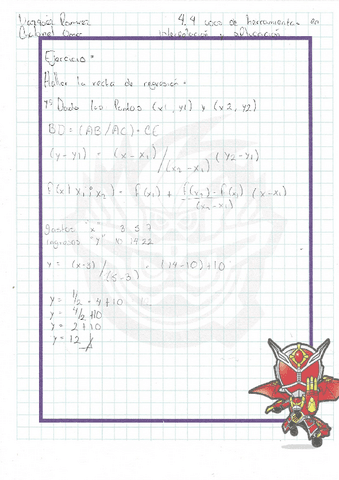 Vazquez Ramirez 4.4 uso de herramientas en
Omar interpolación y
Ejercicio:
Hallar la recta de regresión.
Dado los Puntos (x1, y1) y (x2, y2)
BD = (AB/AC) · CE
(y - y1) = (x - x1)/(x2 - x1) (y2 - y1)
f(x | x1; x2) = f(x1) + f(x2) - f(x1)/(x2 - x1) (x - x1)
gastos "x" 3 5 7
ingresos "y" 10 14 22
y = (x-3)/(5-3) = (14-10)+10
y = 1/2 · 4 + 10
y = 4/2 + 10
y = 2 + 10
y = 12